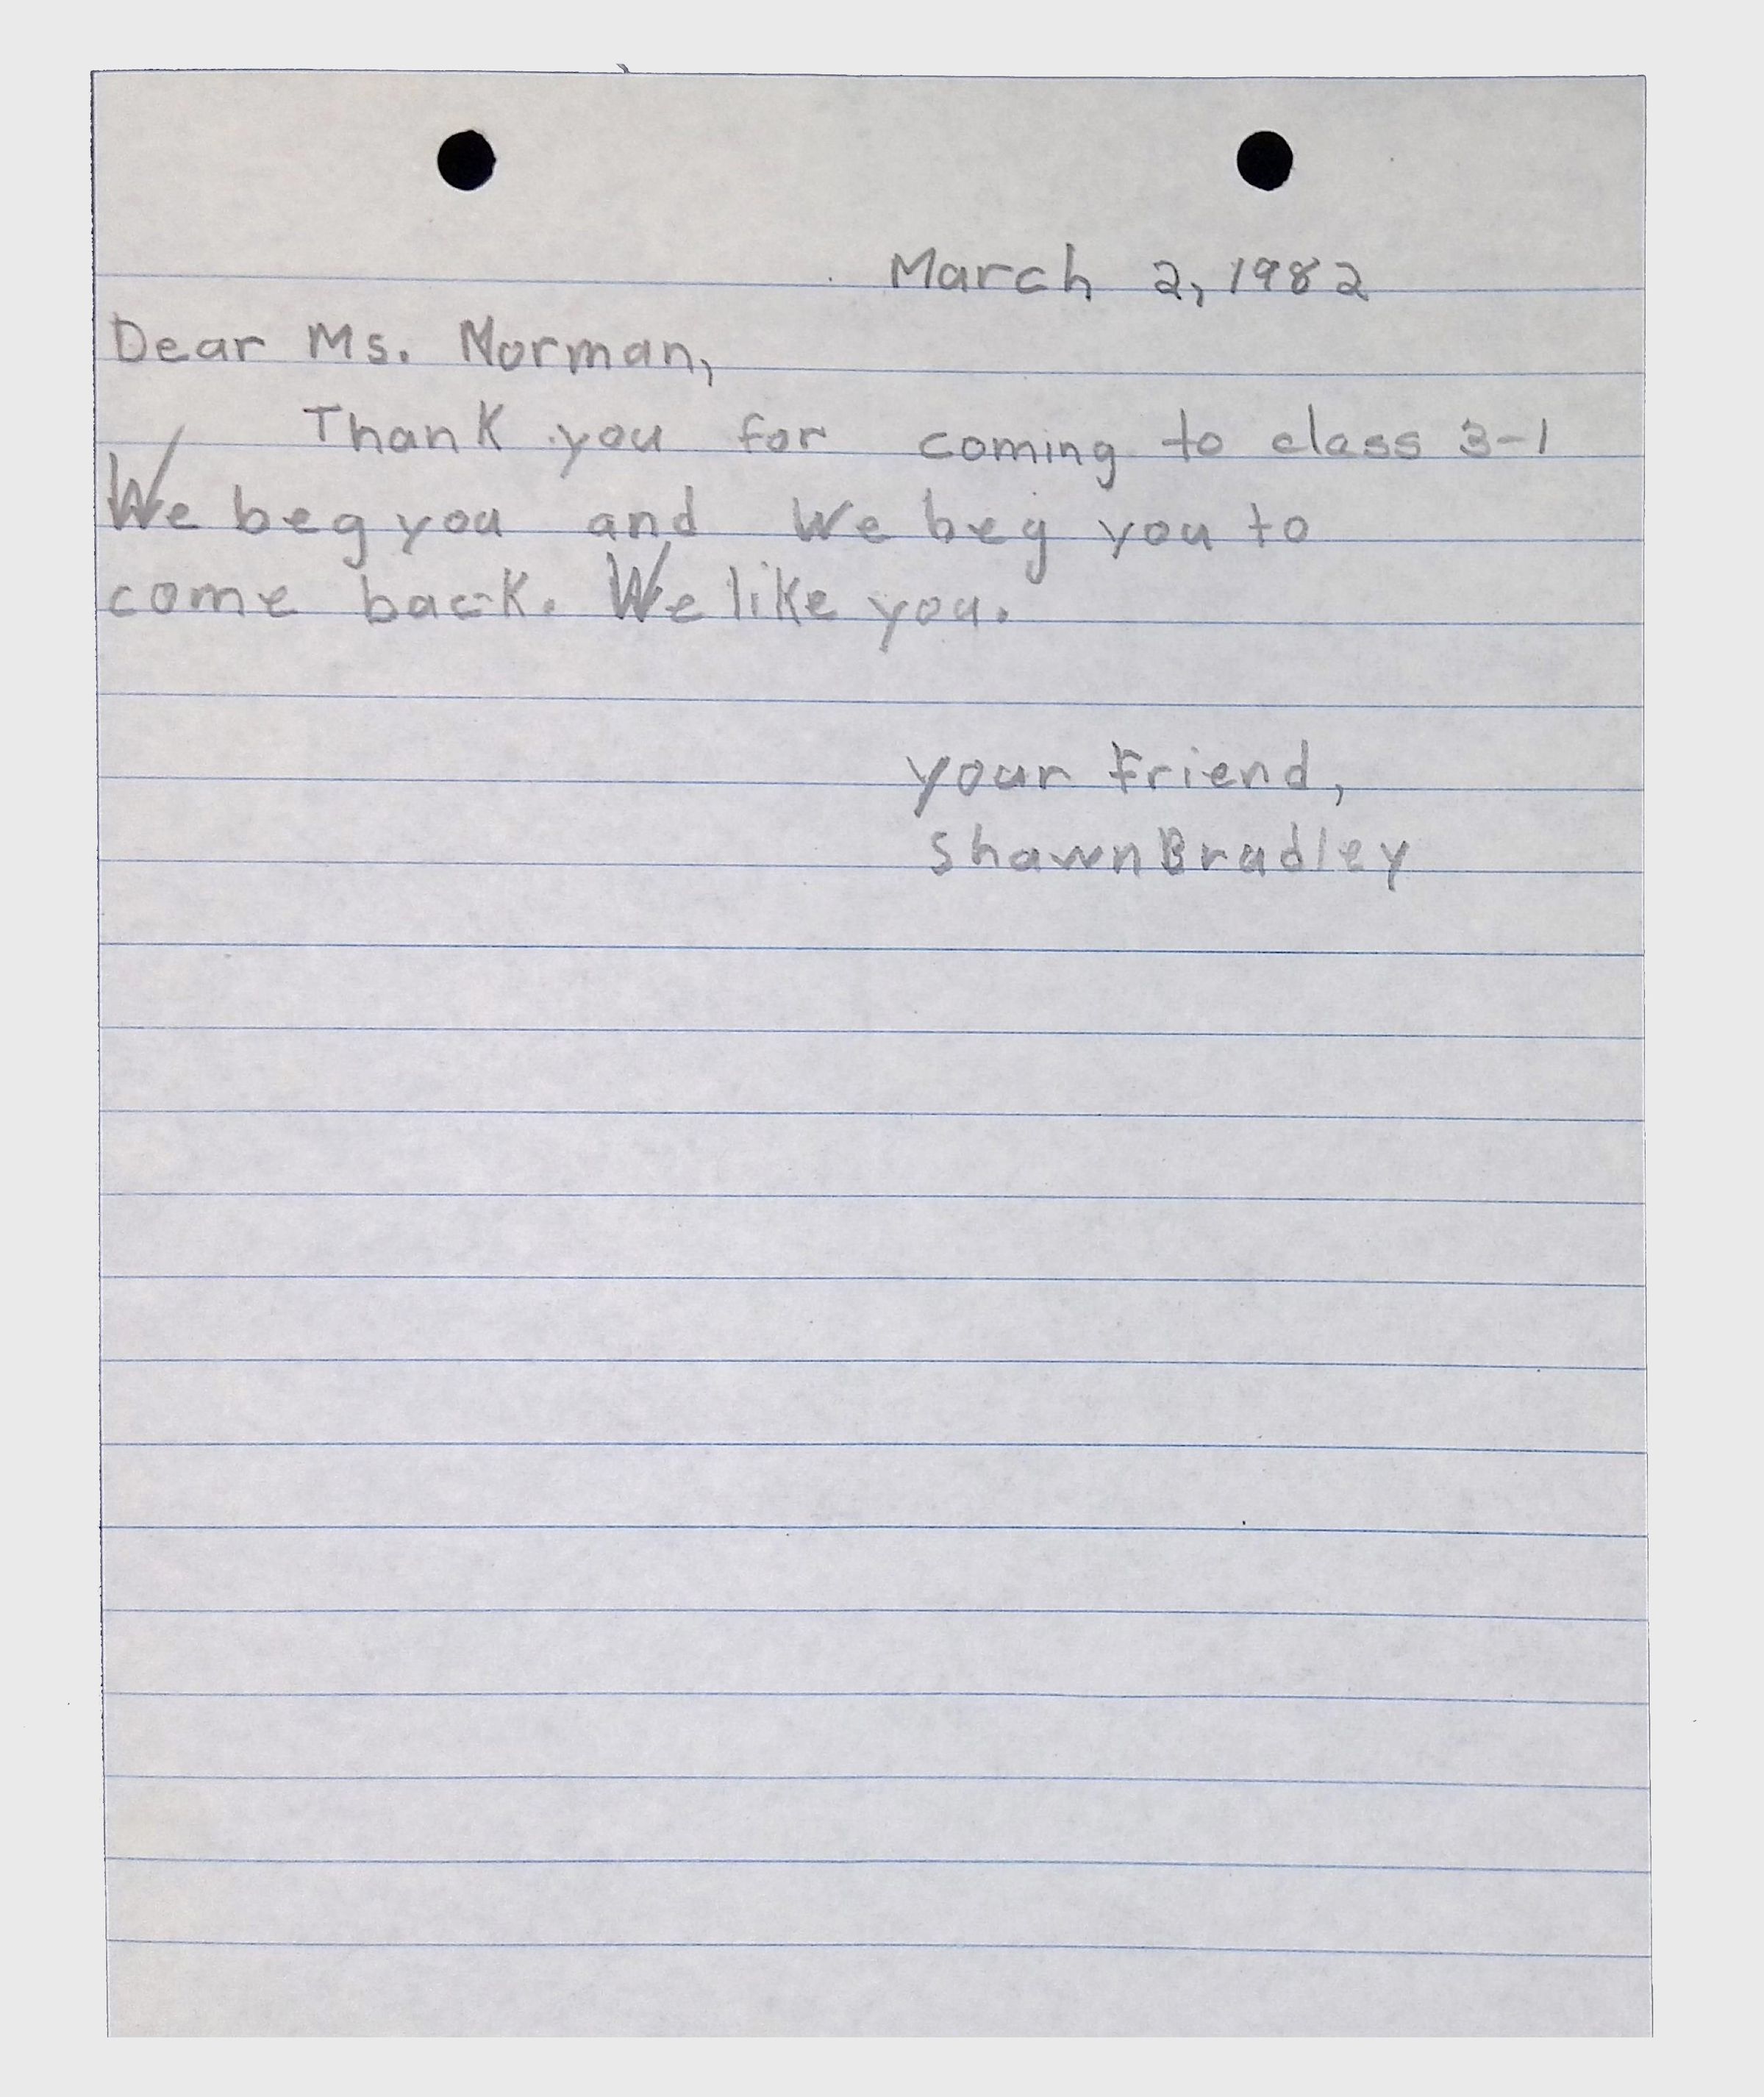 March 2, 1982
Dear Ms. Norman,
Thank you for coming to class 3-1
We beg you and We beg you to
come back. We like you.
your Friend,
Shawn Bradley